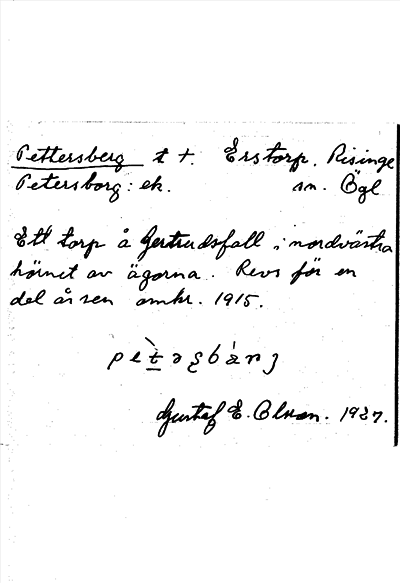 Pettersberg t t. Erstorp. Risinge
Petersborg: ek. sn. Ögl
Ett torp å Gertrudsfall i nordvästra
hörnet av ägorna. Revs för en
del år sen omkr. 1915.
Gustaf E. Olson. 1937.